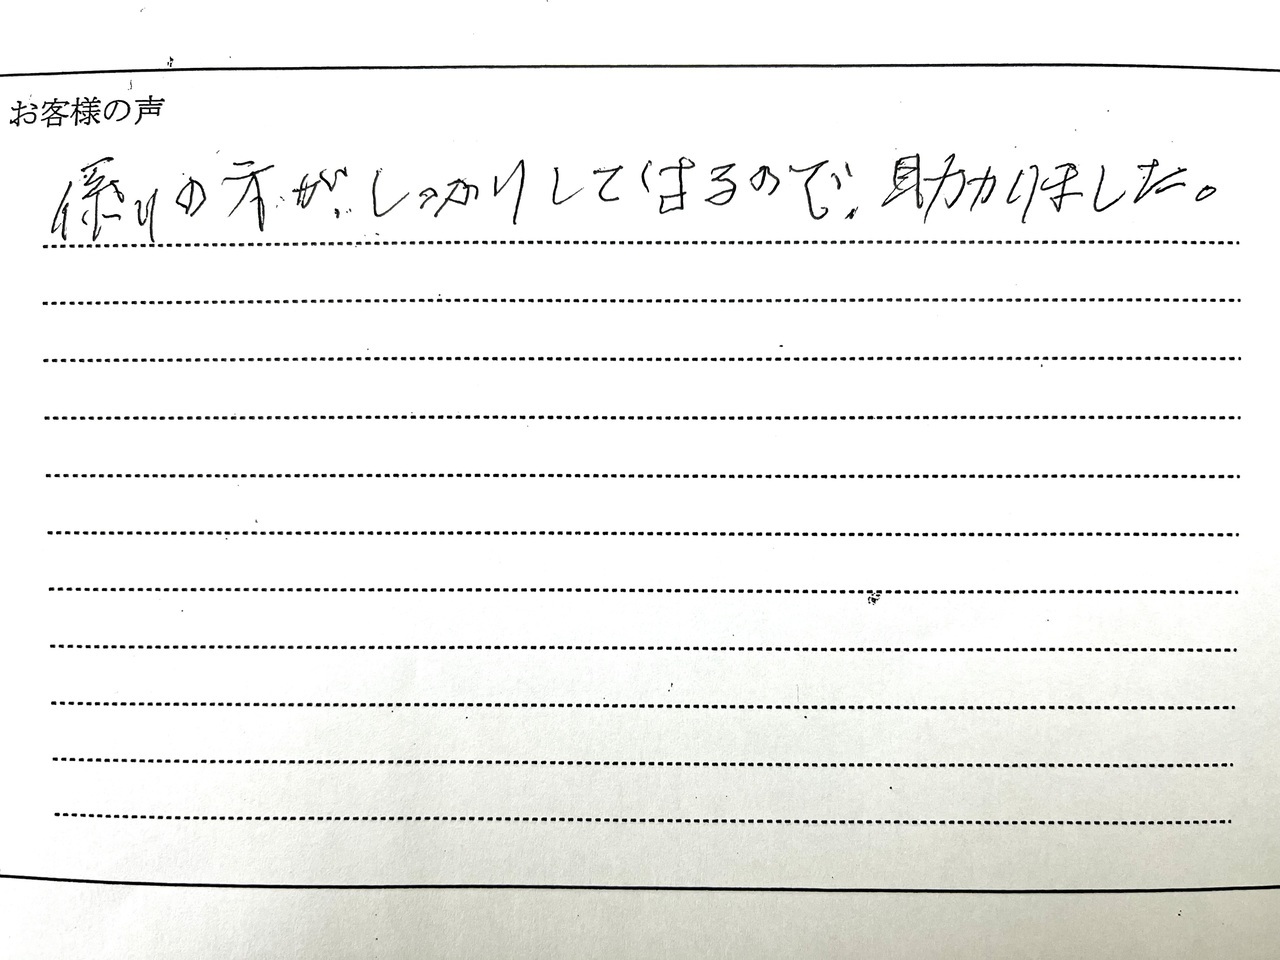 お客様の声
係りの方が、しっかりして居るので、助かりました。